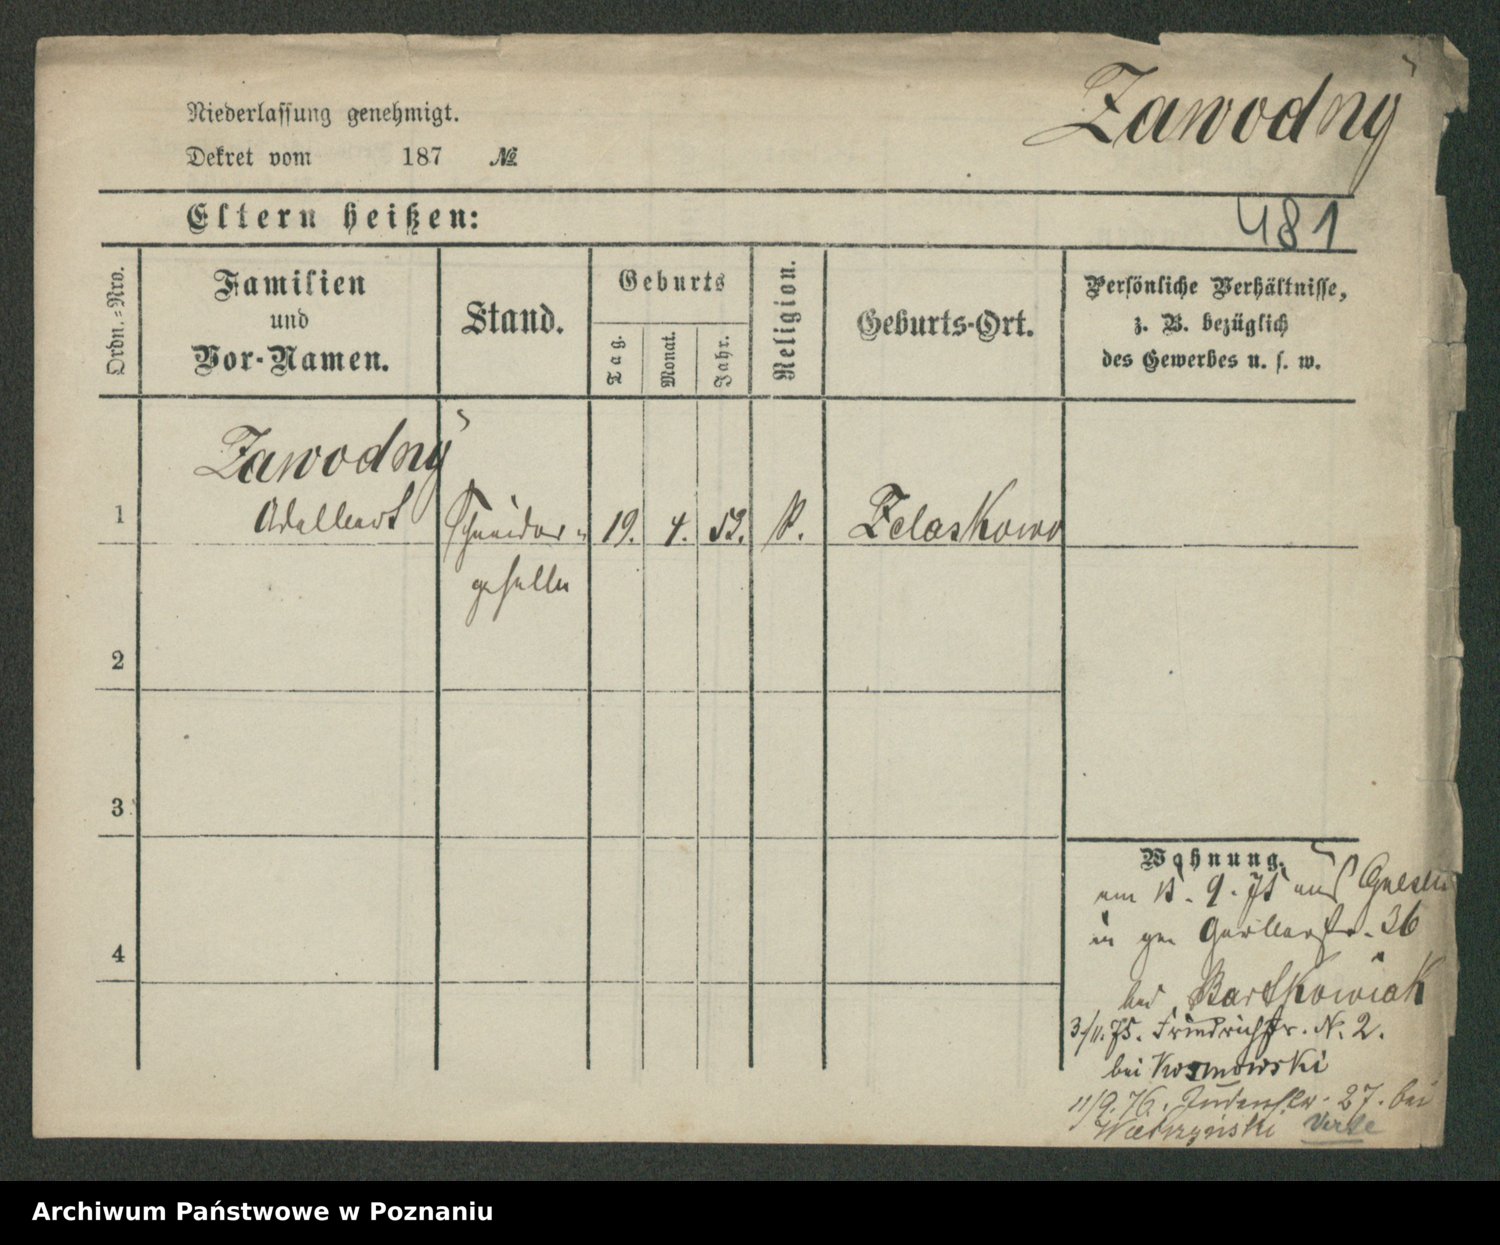 Zawodny
Niederlassung genehmigt.
Dekret vom 187 №
Eltern heißen:
481
Ordn.=Nro.
Familien
und
Vor-Namen.
Stand.
Geburts
Tag.
Monat.
Jahr.
Religion.
Geburts-Ort.
Persönliche Verhältnisse,
z. B. bezüglich
des Gewerbes u. s. w.
Zawodny
1 Adalbert Schneider= 19. 4. 53. k. Zelaskowo
geselle
2
3
4
Wohnung.
am 15. 9. 75 aus Gnesen
in Gerberstr. 36
bei Bartkowiak
3/11.75. Friedrichstr. N. 2.
bei Kosmowski
11/9.76. Judenstr. 27. bei
Archiwum Państwowe w Poznaniu